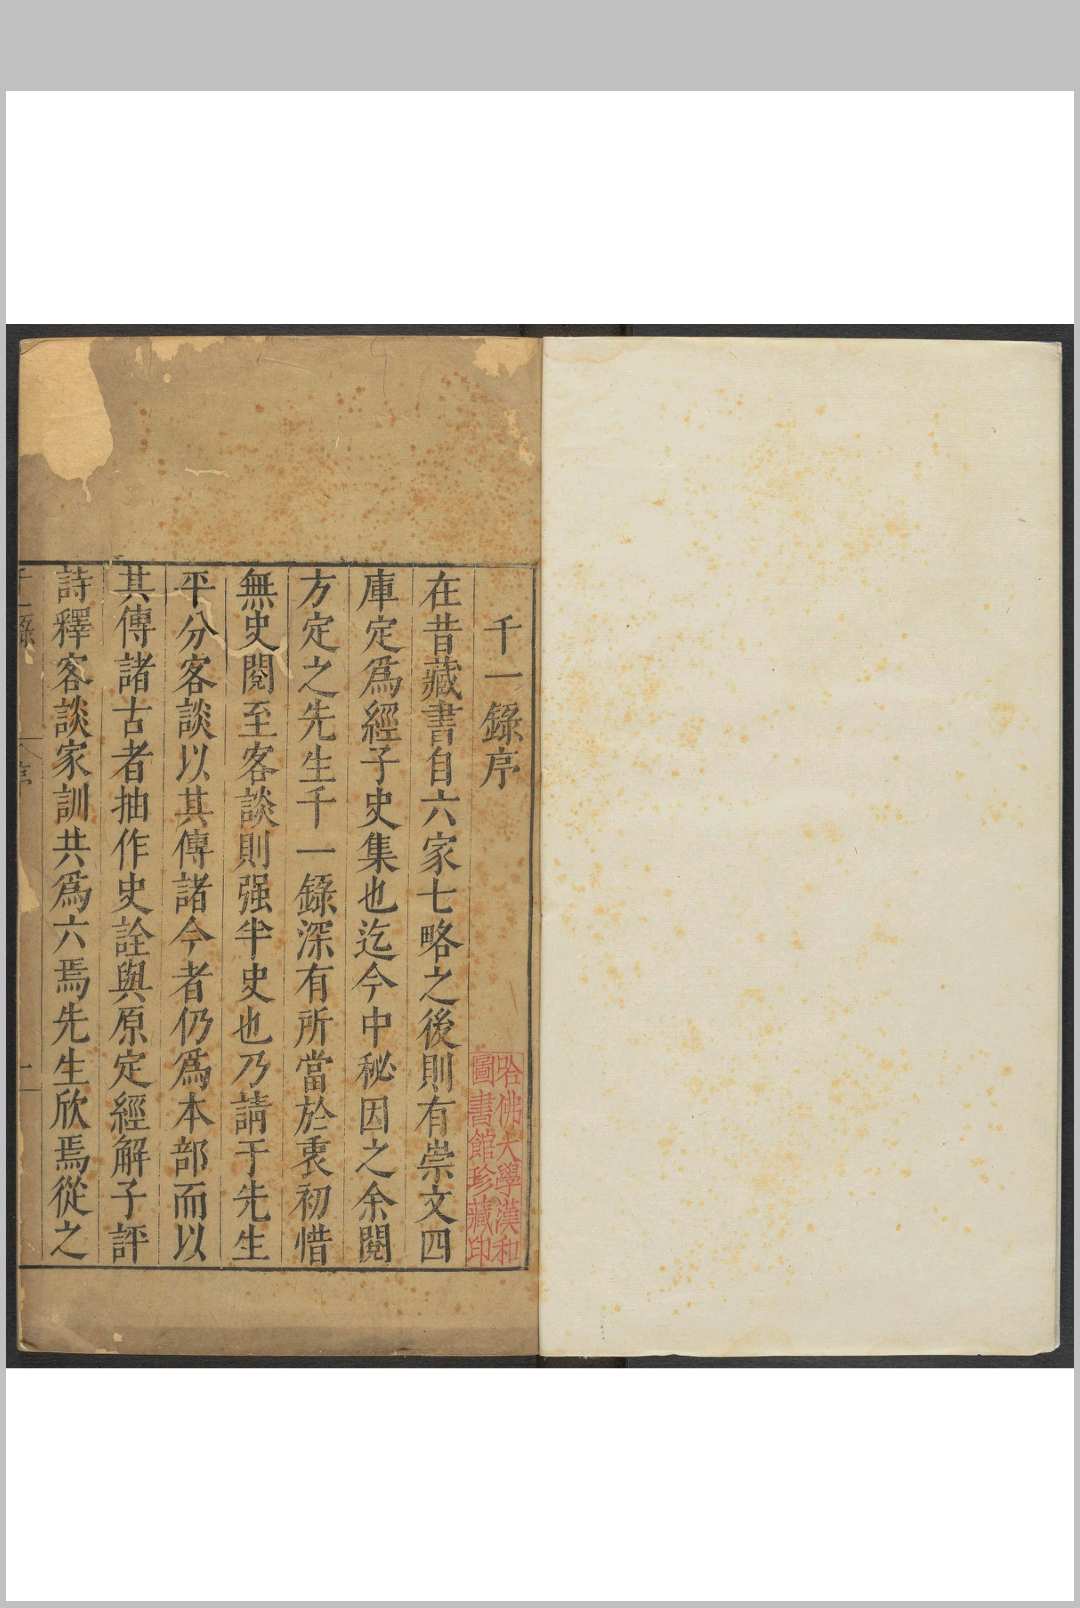 千一錄序
在昔藏書自六家七略之後則有崇文四
庫定爲經子史集也迄今中秘因之余閱
方定之先生千一錄深有所當於衷初惜
無史閱至客談則强半史也乃請于先生
平分客談以其傳諸今者仍爲本部而以
其傳諸古者抽作史詮與原定經解子評
詩釋客談家訓共爲六焉先生欣焉從之
哈佛大學漢和
圖書館珍藏印
序
一